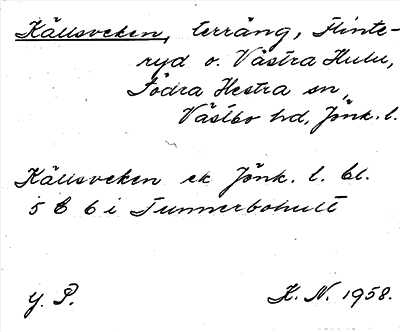 Källsveken, terräng, Flinte-
ryd o. Västra Hulu,
Södra Hestra sn,
Västbo hd, Jönk. l.
Källsveken ek Jönk. l. bl.
5 C 6 i Tunnerbohult
Y. P. K. N. 1958.